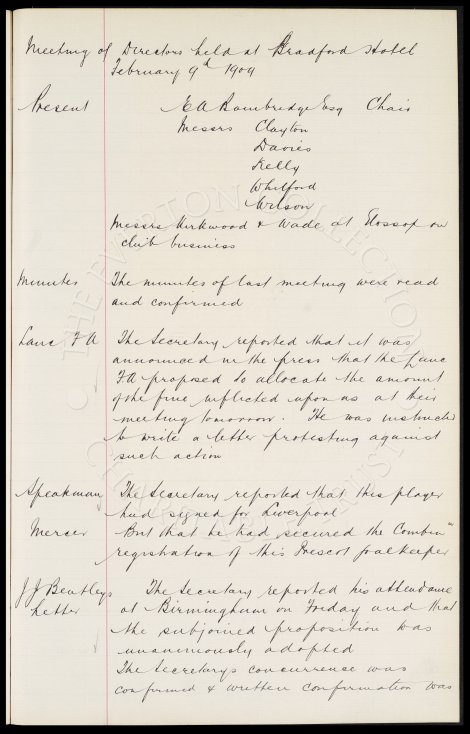 Meeting of Directors held at Bradford Hotel
February 9th 1909
Present E A Bainbridge Esq Chair
Messrs Clayton
Davies
Kelly
Whitford
Wilson
Messrs Kirkwood & Wade at Glossop on
club business
Minutes The minutes of last meeting were read
and confirmed
Lanc FA The Secretary reported that it was
announced in the press that the Lanc
FA proposed to allocate the amount
of the fine inflicted upon us at their
meeting tomorrow. He was instructed
to write a letter protesting against
such action
Speakman The Secretary reported that this player
had signed for Liverpool
Mercer But that he had secured the Combn
registration of this Prescot goalkeeper
J J Bentleys The Secretary reported his attendance
Letter at Birmingham on Friday and that
the subjoined proposition was
unanimously adopted
The Secretarys concurrence was
confirmed & written confirmation was
THE EVERTON COLLECTION
CHARITABLE TRUST